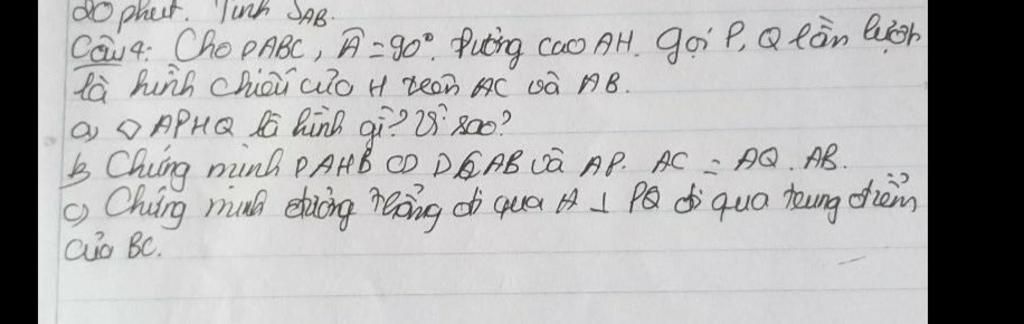 20 phút. Tính SAB.
Câu 4: Cho ΔABC, Â = 90°. Đường cao AH. Gọi P, Q lần lượt
là hình chiếu của H trên AC và AB.
a) ◇ APHQ là hình gì? Vì sao?
b, Chứng minh ΔAHB ∽ ΔCAB và AP. AC = AQ. AB.
c) Chứng minh đường thẳng đi qua A ⊥ PQ đi qua trung điểm
của BC.